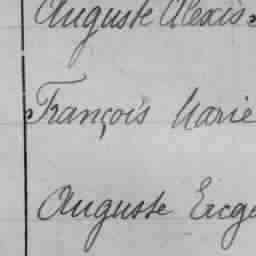 Auguste Alexis
François Marie
Auguste